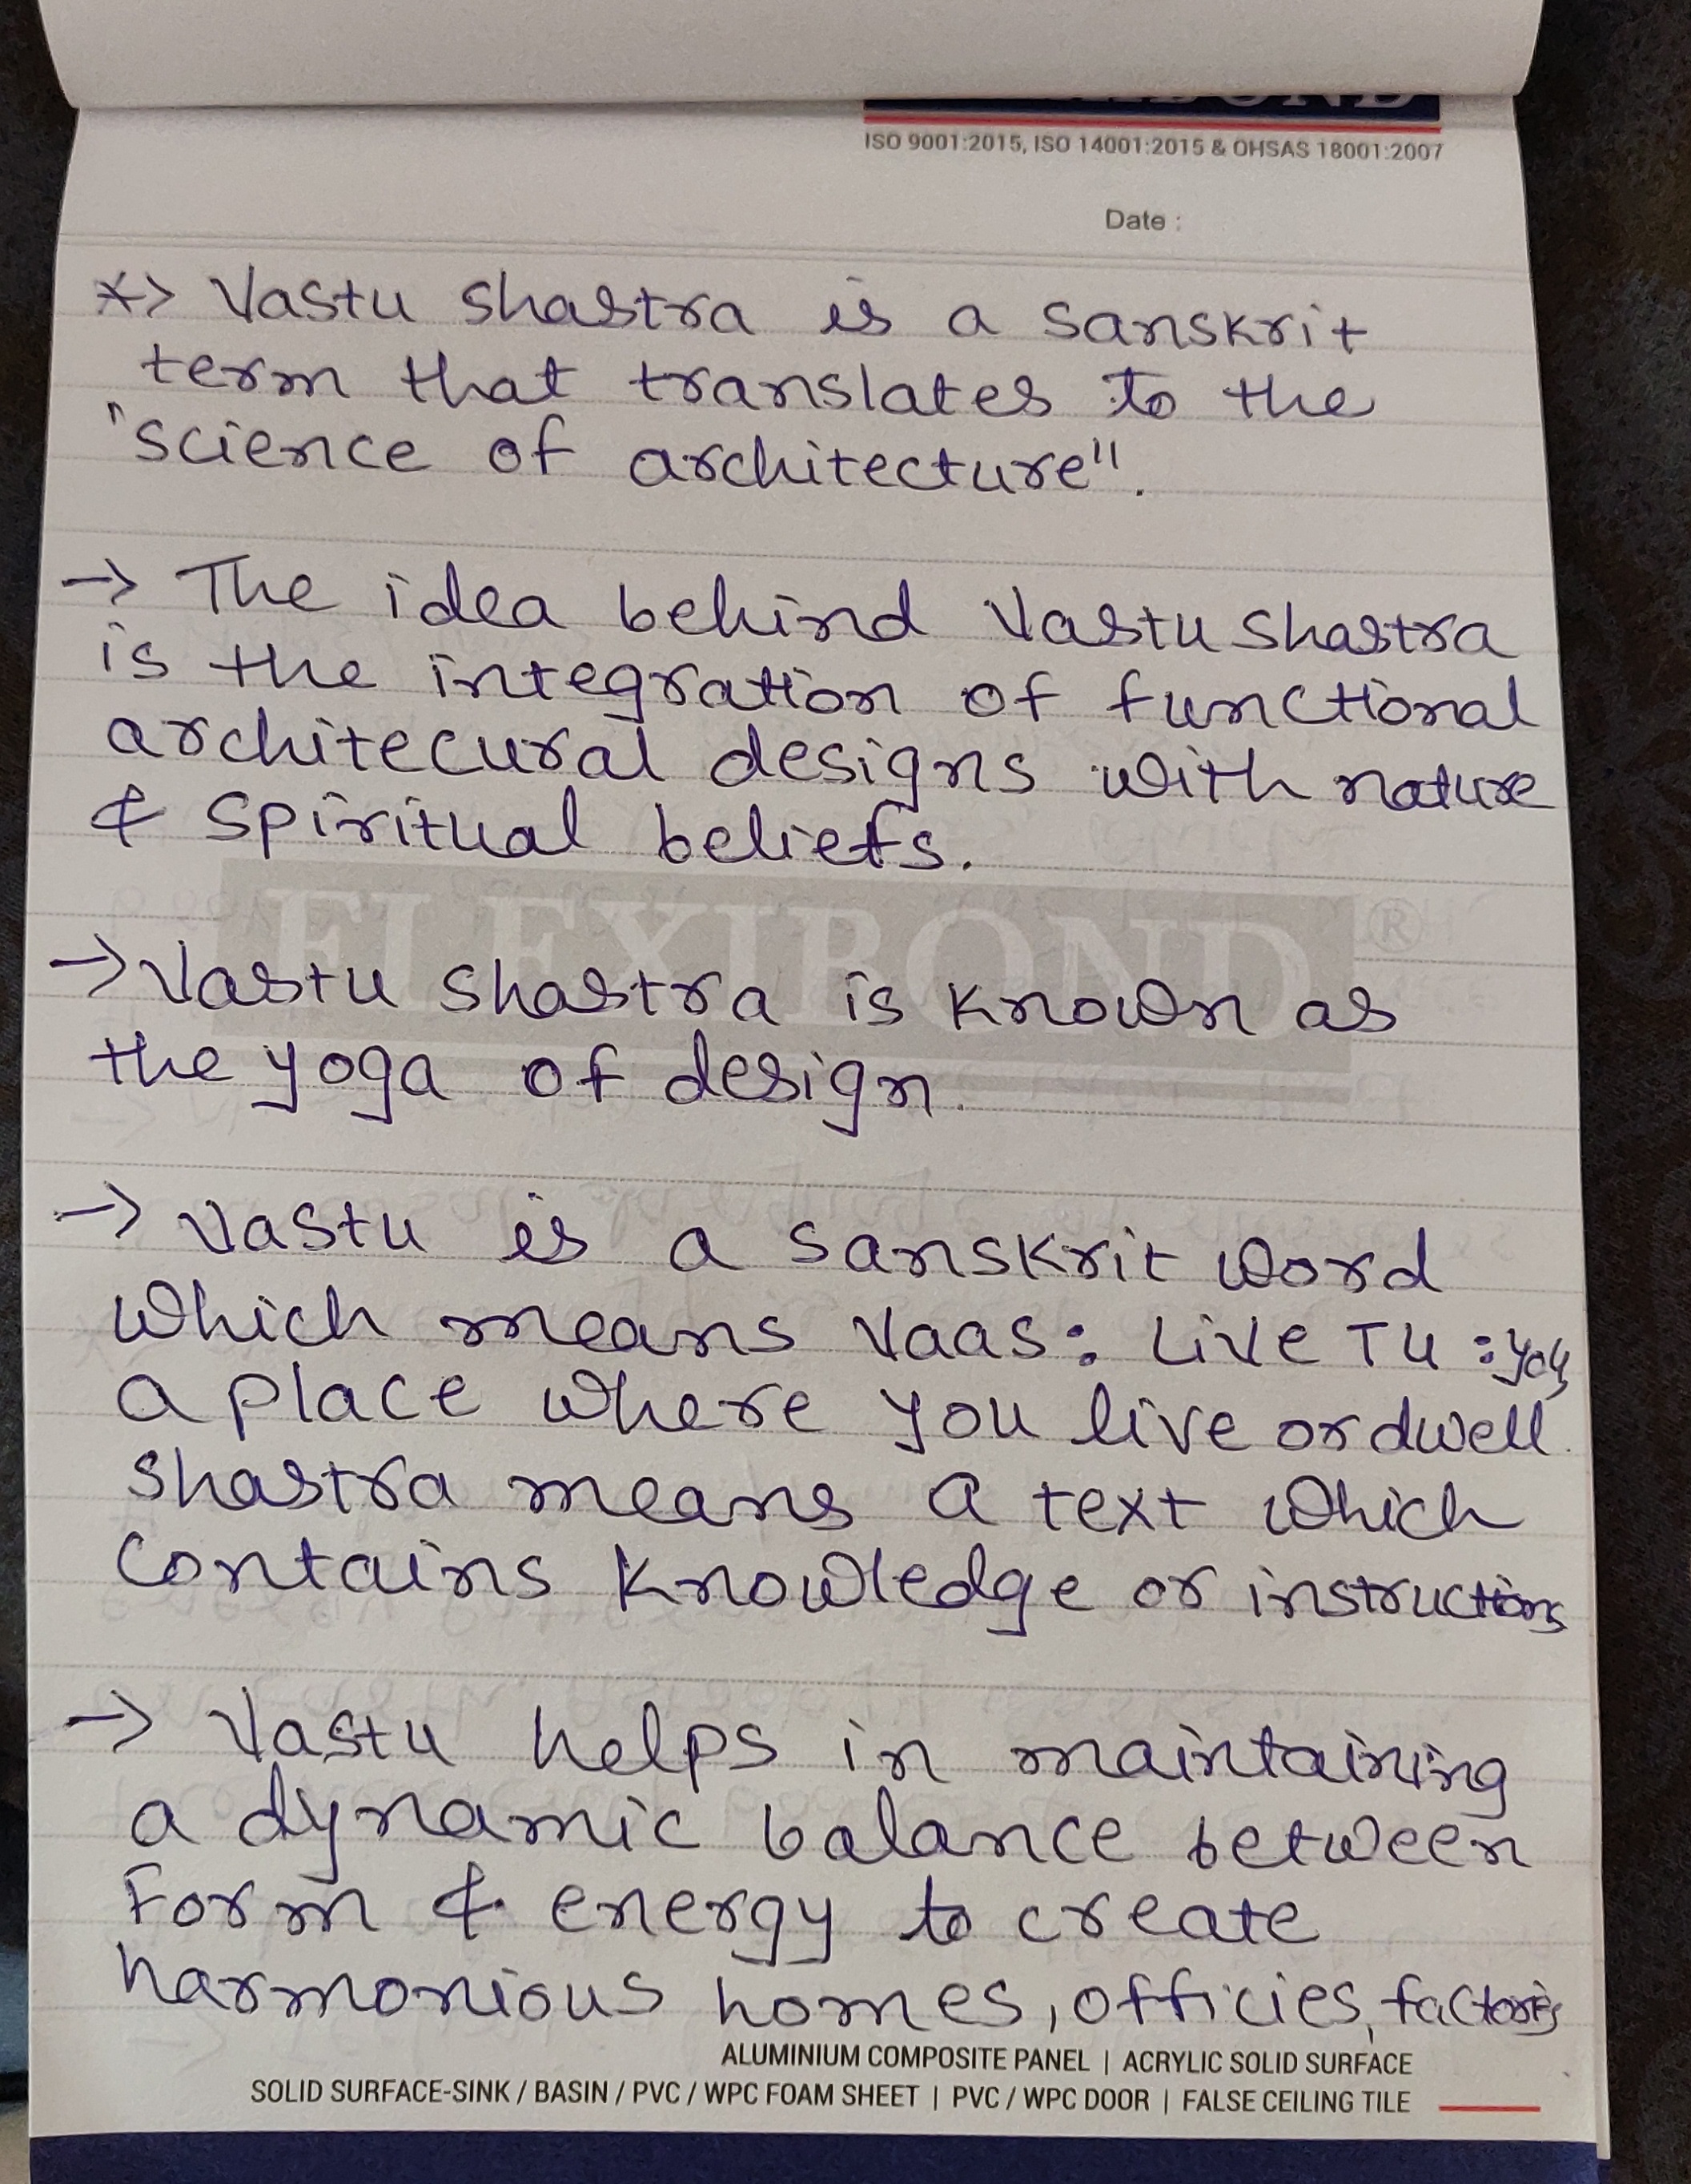 ISO 9001:2015, ISO 14001:2015 & OHSAS 18001:2007
Date :
*> Vastu shastra is a sanskrit
term that translates to the
"science of architecture".
→ The idea behind Vastu shastra
is the integration of functional
architecural designs with nature
& spiritual beliefs.
FLEXIBOND ®
→ Vastu shastra is known as
the yoga of design.
→ Vastu is a sanskrit word
which means Vaas: Live Tu : you,
a place where you live or dwell.
shastra means a text which
contains knowledge or instructions
→ Vastu helps in maintaining
a dynamic balance between
Form & energy to create
harmonious homes, officies, factories
ALUMINIUM COMPOSITE PANEL | ACRYLIC SOLID SURFACE
SOLID SURFACE-SINK / BASIN / PVC / WPC FOAM SHEET | PVC / WPC DOOR | FALSE CEILING TILE